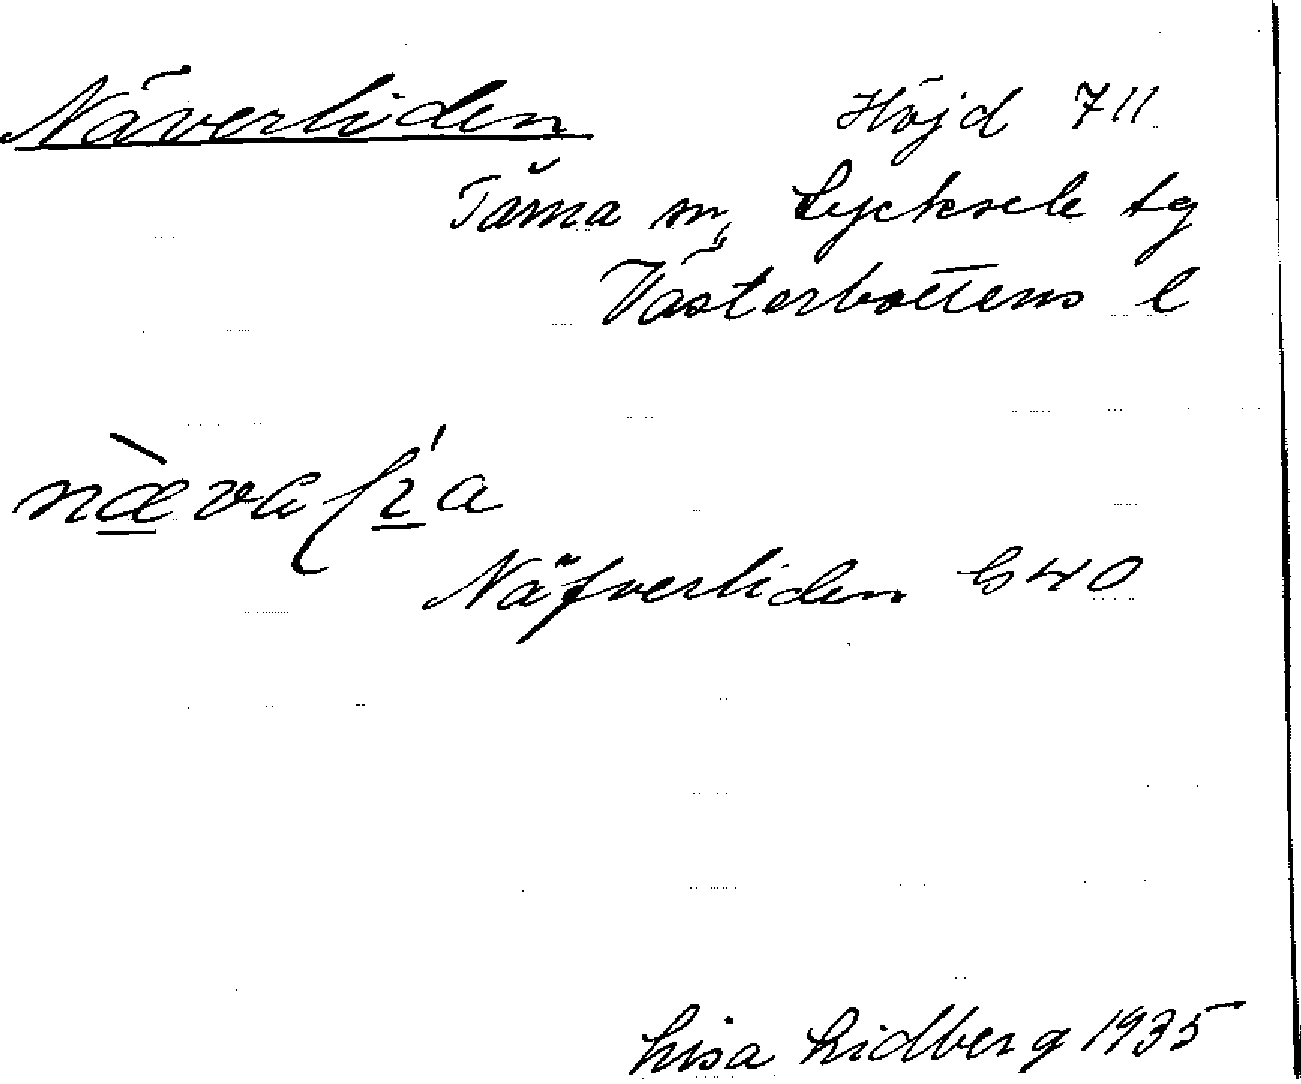 Näverliden Höjd 711
Tärna sn, Lycksele lg
Västerbottens l
nævaḷia
Näfverliden G40
Lisa Lidberg 1935